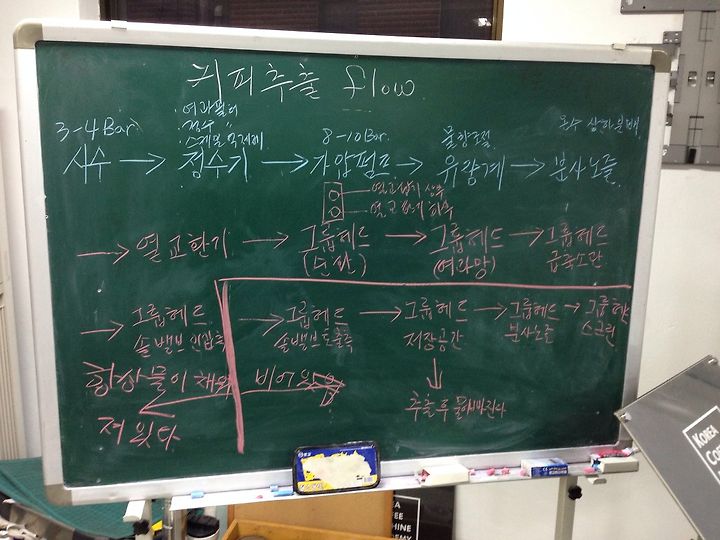 커피추출 flow
3-4 Bar
시수 → 정수기 → 가압펌프 → 유량계 → 분사노즐
· 여과필터
· 정수 〃
· 스케일 억제제
8-10 Bar
물량조절
온수
열교환기 상수
열교환기 하수
→ 열교환기 → 그룹헤드 → 그룹헤드 → 그룹헤드
(도판)
(여과망)
→ 그룹헤드 → 그룹헤드 → 그룹헤드 → 그룹헤드 → 그룹헤드
솔밸브 인입측
솔밸브토출측
저장공간
분사노즐
스크린
항상 물이 채워
비어있음
져 있다
↓
추출 후 물이 빠진다
KOREA